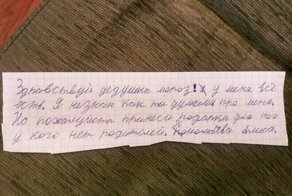 Здравствуй дедушка мороз! у меня всё
есть. Я незнаю как ты думаеш про меня.
Но пожалуйста принеси подарки для тех
у кого нет родителей.